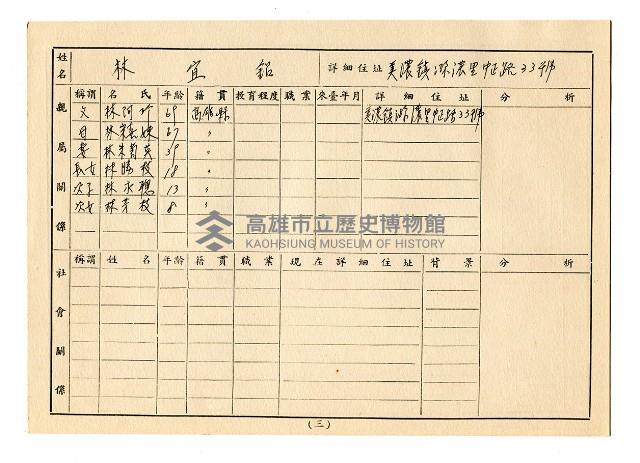 姓名 林宜鋁 詳細住址 美濃鎮 濃里中正路33號
親屬關係
稱謂 名氏 年齡 籍貫 教育程度 職業 來臺年月 詳細住址 分析
父 林阿 69 高雄縣 美濃鎮 濃里中正路33號
母 林 67 〃
妻 林朱 英 39 〃
長女 林勝枝 18 〃
次子 林永聰 13 〃
次女 林芳枝 8 〃
高雄市立歷史博物館
KAOHSIUNG MUSEUM OF HISTORY
社會關係
稱謂 姓名 年齡 籍貫 職業 現在詳細住址 背景 分析
(三)